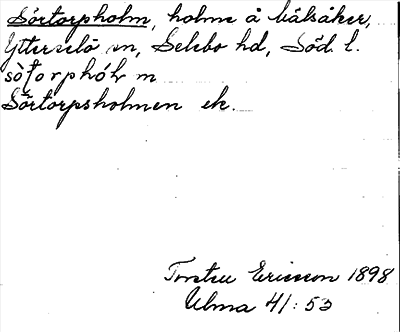 Sörtorpholm, holme å Kålsåker,
Ytterselö sn, Selebo hd, Söd. l.
Sörtorpsholmen ek.
Torsten Ericsson 1898
Ulma 41:53